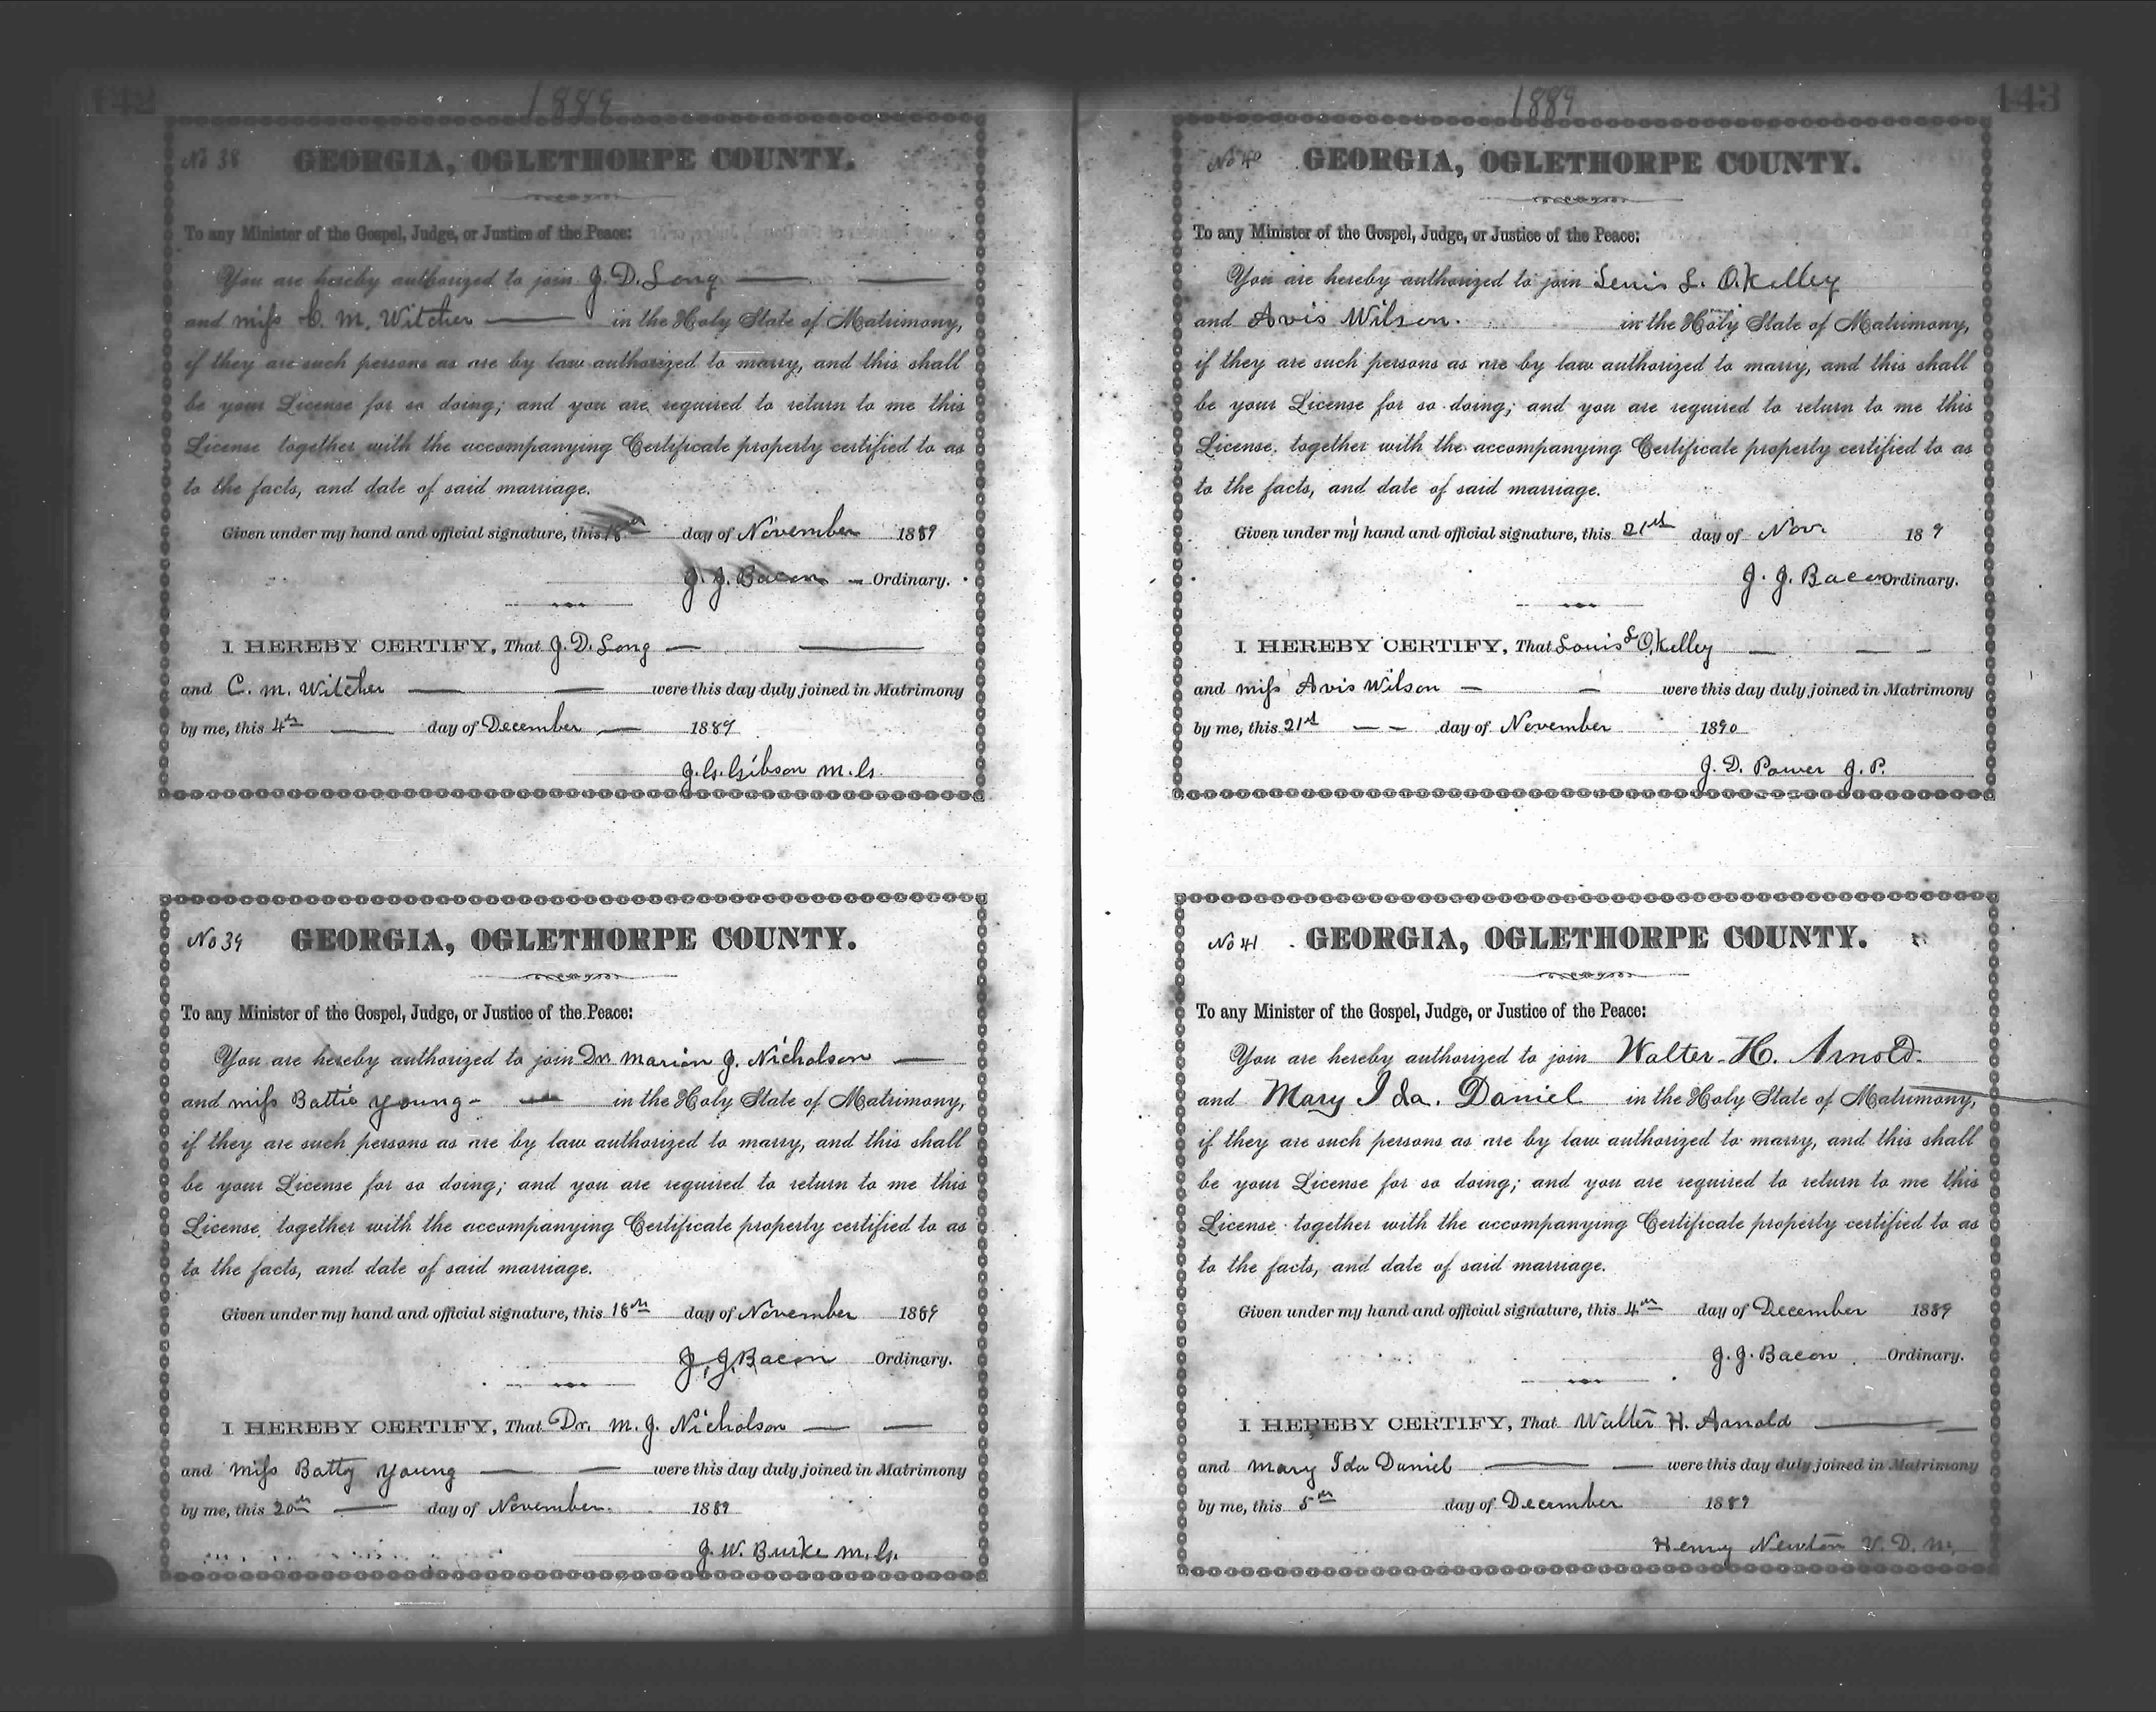 142
1889
No 38 GEORGIA, OGLETHORPE COUNTY.
To any Minister of the Gospel, Judge, or Justice of the Peace:
You are hereby authorized to join J. D. Long
and miss C. M. Witcher in the Holy State of Matrimony,
if they are such persons as are by law authorized to marry, and this shall
be your License for so doing; and you are required to return to me this
License together with the accompanying Certificate properly certified to as
to the facts, and date of said marriage.
Given under my hand and official signature, this 18th day of November 1889
J. J. Bacon Ordinary.
I HEREBY CERTIFY, That J. D. Long
and C. M. Witcher were this day duly joined in Matrimony
by me, this 4th day of December 1889
J. G. Gibson M. G.
No 39 GEORGIA, OGLETHORPE COUNTY.
To any Minister of the Gospel, Judge, or Justice of the Peace:
You are hereby authorized to join Dr. Marion J. Nicholson
and miss Battie Young in the Holy State of Matrimony,
if they are such persons as are by law authorized to marry, and this shall
be your License for so doing; and you are required to return to me this
License, together with the accompanying Certificate properly certified to as
to the facts, and date of said marriage.
Given under my hand and official signature, this 18th day of November 1889
J. J. Bacon Ordinary.
I HEREBY CERTIFY, That Dr. M. J. Nicholson
and miss Batty Young were this day duly joined in Matrimony
by me, this 20th day of November 1889
J. W. Burke M. G.
143
1889
No 40 GEORGIA, OGLETHORPE COUNTY.
To any Minister of the Gospel, Judge, or Justice of the Peace:
You are hereby authorized to join Lewis L. O.Kelley
and Avis Wilson. in the Holy State of Matrimony,
if they are such persons as are by law authorized to marry, and this shall
be your License for so doing; and you are required to return to me this
License, together with the accompanying Certificate properly certified to as
to the facts, and date of said marriage.
Given under my hand and official signature, this 21st day of Nov. 18 9
J. J. Bacon Ordinary.
I HEREBY CERTIFY, That Louis L O.Kelley
and miss Avis Wilson were this day duly joined in Matrimony
by me, this 21st day of November 1890
J. D. Power J. P.
No 41 GEORGIA, OGLETHORPE COUNTY.
To any Minister of the Gospel, Judge, or Justice of the Peace:
You are hereby authorized to join Walter H. Arnold.
and Mary Ida. Daniel in the Holy State of Matrimony,
if they are such persons as are by law authorized to marry, and this shall
be your License for so doing; and you are required to return to me this
License together with the accompanying Certificate properly certified to as
to the facts, and date of said marriage.
Given under my hand and official signature, this 4th day of December 1889
J. J. Bacon Ordinary.
I HEREBY CERTIFY, That Walter H. Arnold
and Mary Ida Daniel were this day duly joined in Matrimony
by me, this 5th day of December 1889
Henry Newton V. D. M.